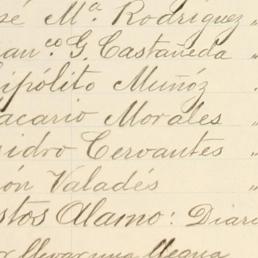 sé M.ª Rodríguez "
an.co G. Castañeda "
ipólito Muñóz "
acario Morales "
sidro Cervantes "
ón Valadés "
stos Alamo: Diari
llevar una llegua